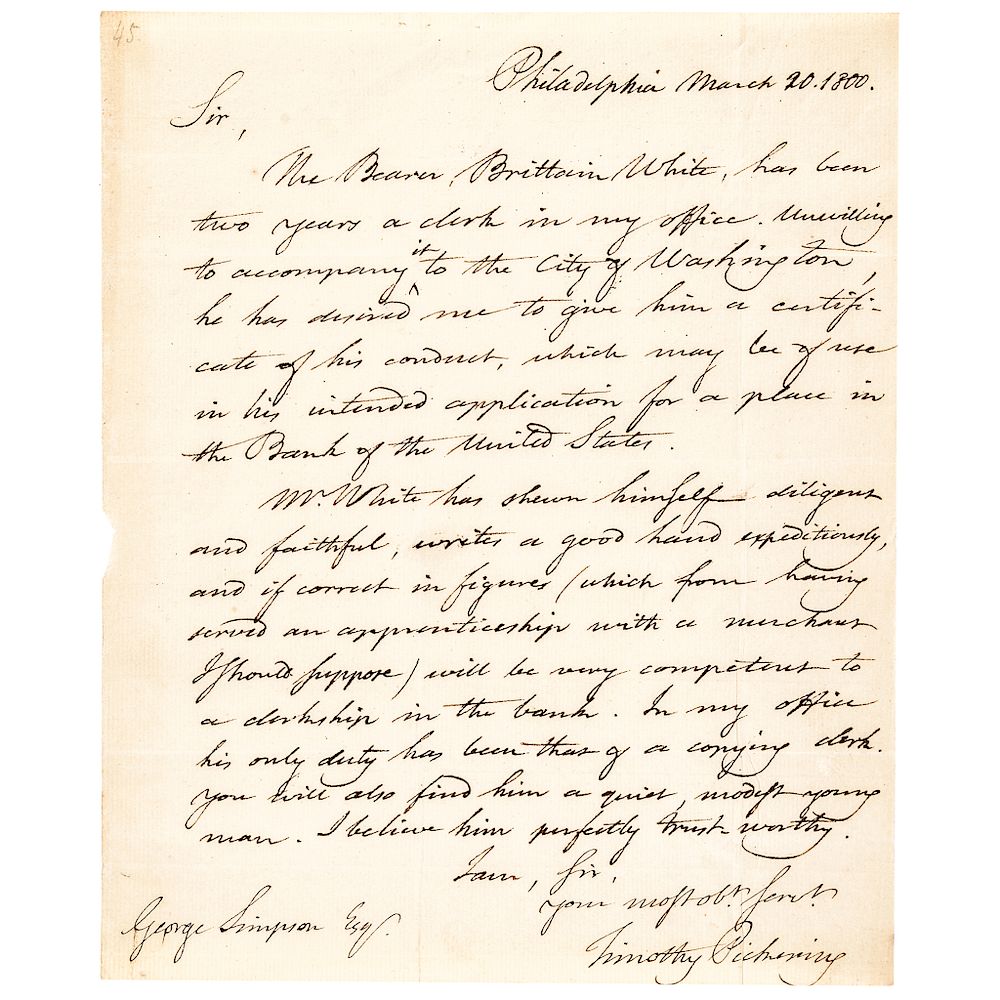 45.
Philadelphia March 20. 1800.
Sir,
The Bearer, Brittain White, has been
two years a clerk in my office. Unwilling
to accompany it to the City of Washington,
he has desired me to give him a certifi-
cate of his conduct, which may be of use
in his intended application for a place in
the Bank of the United States.
Mr. White has shewn himself diligent
and faithful, writes a good hand expeditiously,
and if correct in figures (which from having
served an apprenticeship with a merchant
I should suppose) will be very competent to
a clerkship in the bank. In my office
his only duty has been that of a copying clerk.
You will also find him a quiet, modest young
man. I believe him perfectly trust-worthy.
I am, Sir,
your most obt. servt.
George Simpson Esq.
Timothy Pickering